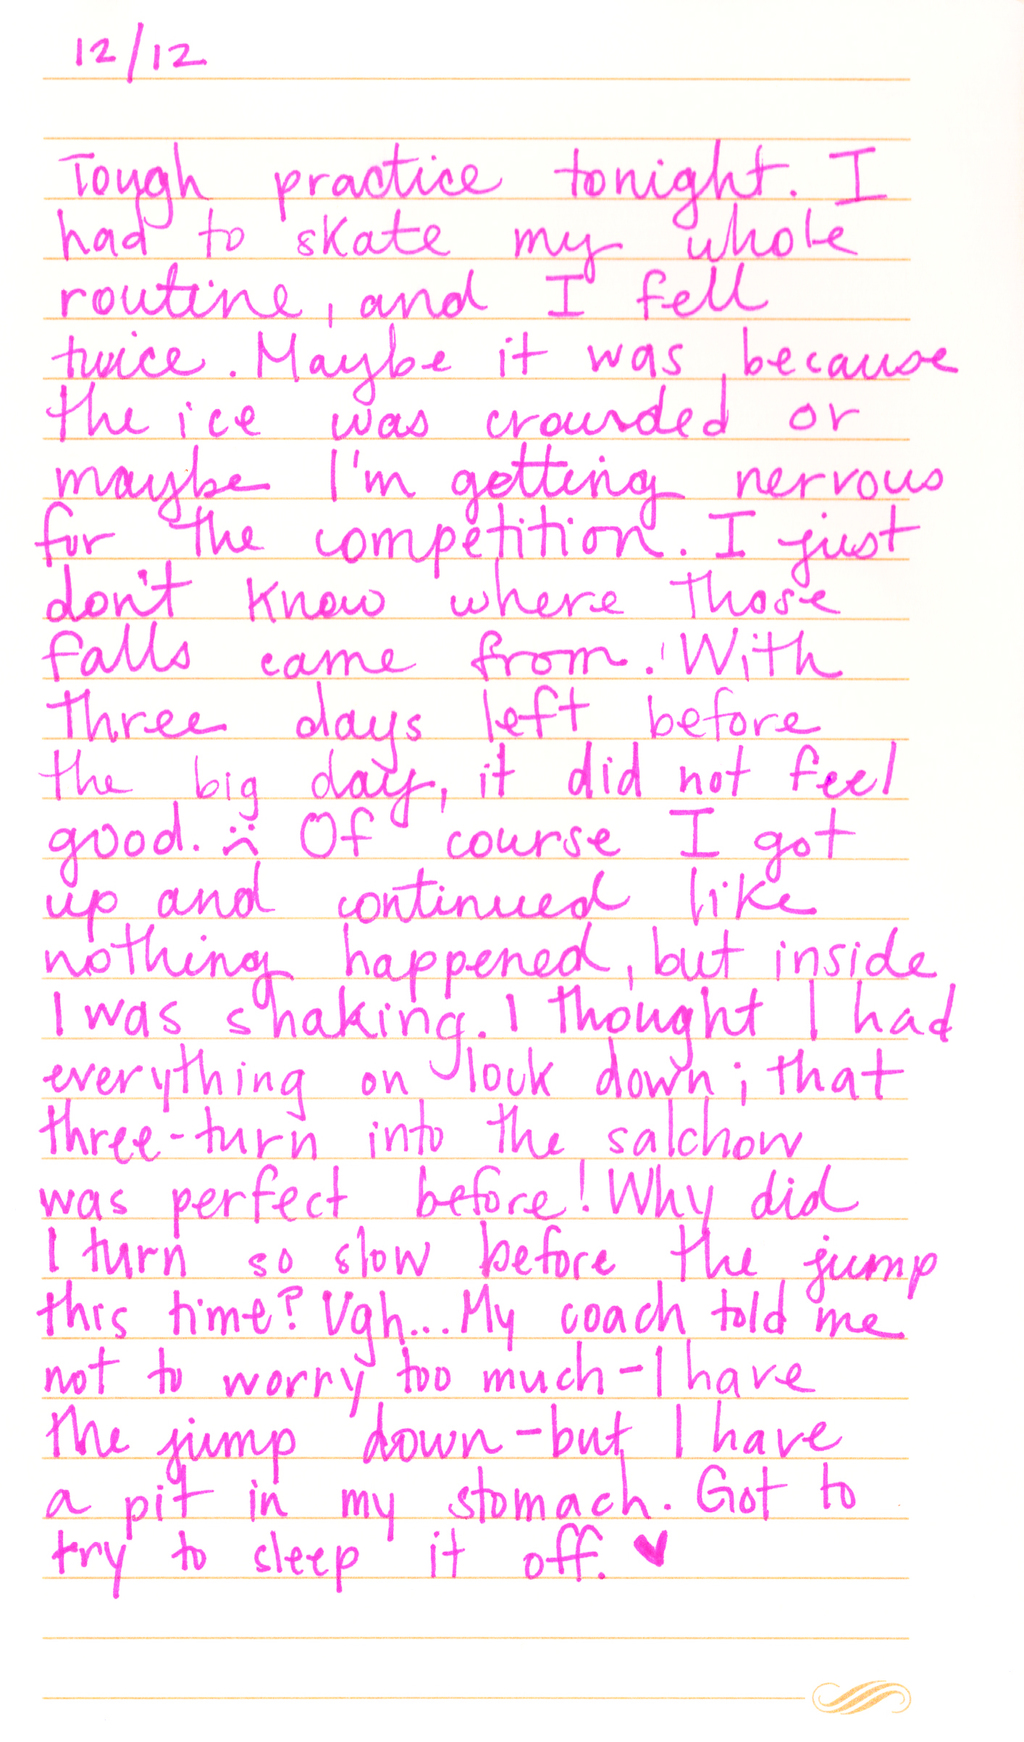 12/12
Tough practice tonight. I
had to skate my whole
routine, and I fell
twice. Maybe it was because
the ice was crowded or
maybe I'm getting nervous
for the competition. I just
don't know where those
falls came from. With
three days left before
the big day, it did not feel
good. :( Of course I got
up and continued like
nothing happened, but inside
I was shaking. I thought I had
everything on lock down; that
three-turn into the salchow
was perfect before! Why did
I turn so slow before the jump
this time? Ugh... My coach told me
not to worry too much - I have
the jump down - but I have
a pit in my stomach. Got to
try to sleep it off. ♥